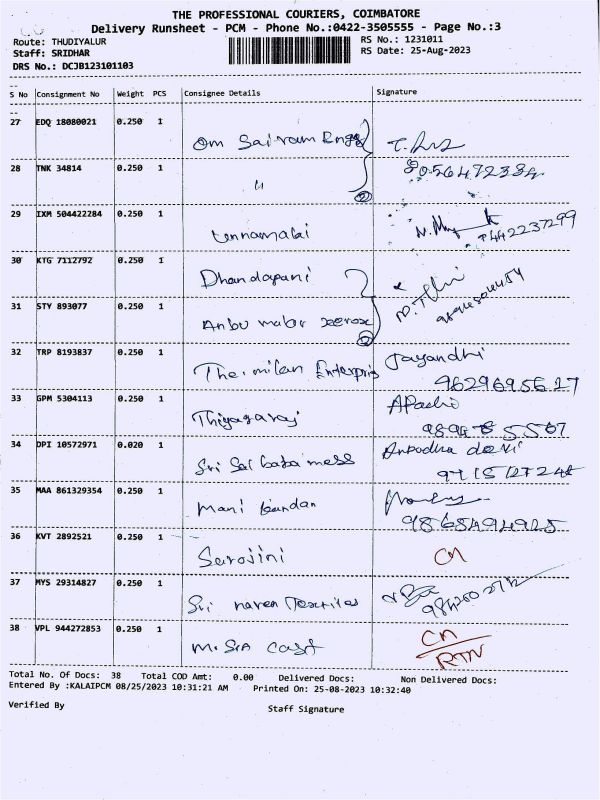 THE PROFESSIONAL COURIERS, COIMBATORE
Delivery Runsheet - PCM - Phone No.:0422-3505555 - Page No.:3
Route: THUDIYALUR RS No.: 1231011
Staff: SRIDHAR RS Date: 25-Aug-2023
DRS No.: DCJB123101103
S No Consignment No Weight PCS Consignee Details Signature
27 EDQ 18080021 0.250 1 Om Sairam Engg
28 TNK 34814 0.250 1 "
29 IXM 504422284 0.250 1
30 KTG 7112792 0.250 1 Dhandapani
31 STY 893077 0.250 1 Anbu malar xerox
32 TRP 8193837 0.250 1 Enterpris Jayandhi
9629695627
33 GPM 5304113 0.250 1 Thiyagaraj
34 DPI 10572971 0.020 1 Sri Sai baba mess devi
35 MAA 861329354 0.250 1 Mani kandan
36 KVT 2892521 0.250 1 Sarojini
37 MYS 29314827 0.250 1 Sri naren Textiles
38 VPL 944272853 0.250 1 Cast
RTN
Total No. Of Docs: 38 Total COD Amt: 0.00 Delivered Docs: Non Delivered Docs:
Entered By :KALAIPCM 08/25/2023 10:31:21 AM Printed On: 25-08-2023 10:32:40
Verified By Staff Signature